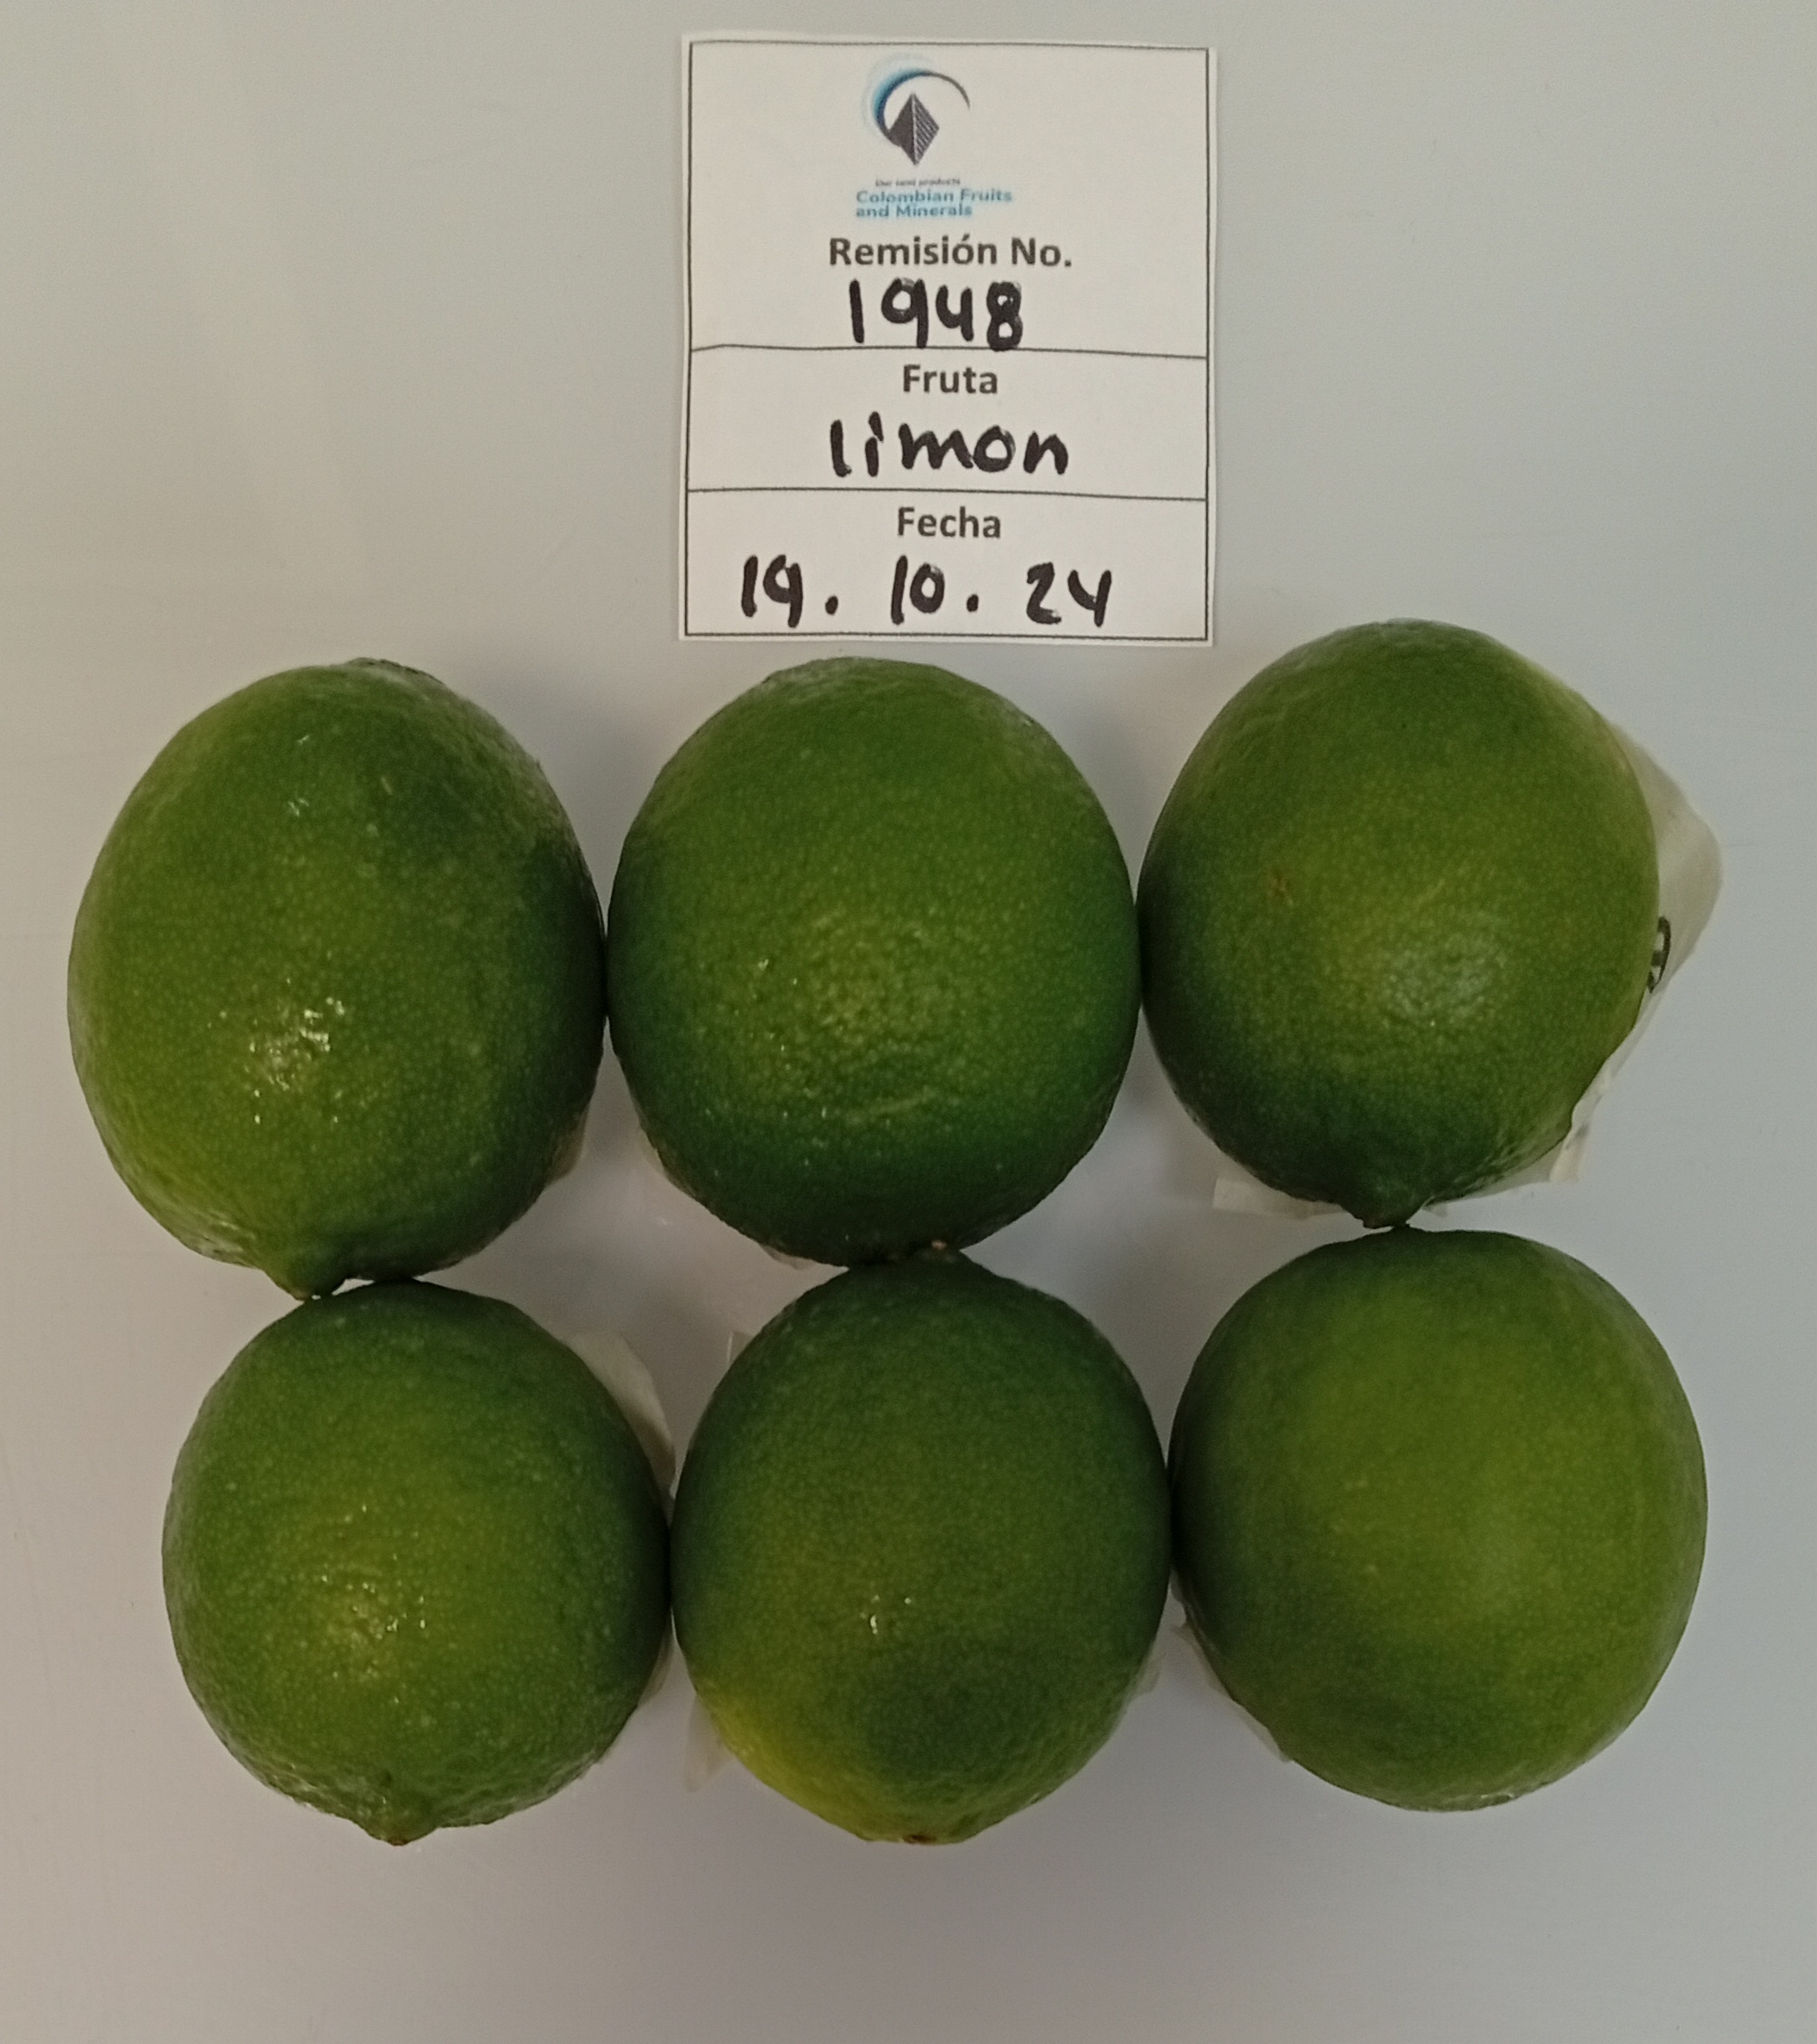 Our land products
Colombian Fruits
and Minerals
Remisión No.
1948
Fruta
limon
Fecha
19. 10. 24